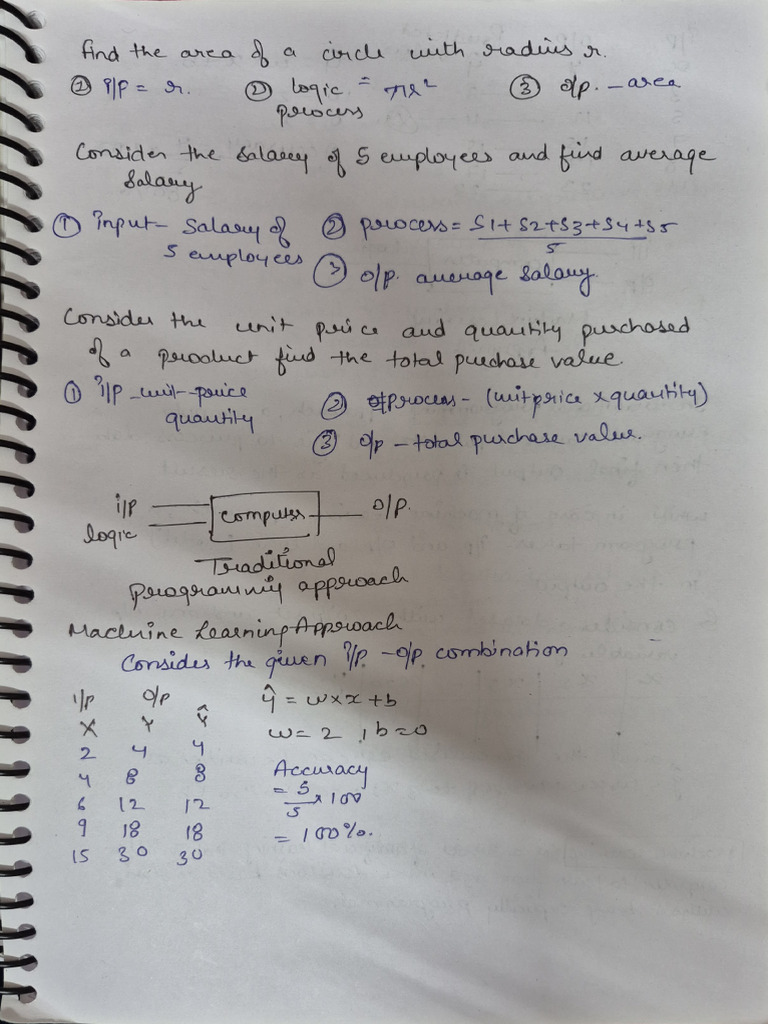 find the area of a circle with radius r.
① i/p = r. ② logic = πr² ③ o/p. - area
process
Consider the salary of 5 employees and find average
salary
① Input - Salary of ② process = S1 + S2 + S3 + S4 + S5
5 employees 5
③ o/p. average salary.
Consider the unit price and quantity purchased
of a product find the total purchase value.
① i/p - unit-price ② process - (unit price x quantity)
quantity
③ o/p - total purchase value.
i/p computer o/p.
logic
Traditional
programming approach
Machine Learning Approach
Consider the given i/p. - o/p. combination
i/p o/p ŷ = w x x + b
X Y Ŷ w = 2 , b = 0
2 4 4
4 8 8 Accuracy
6 12 12 = 5/5 x 100
9 18 18 = 100%.
15 30 30